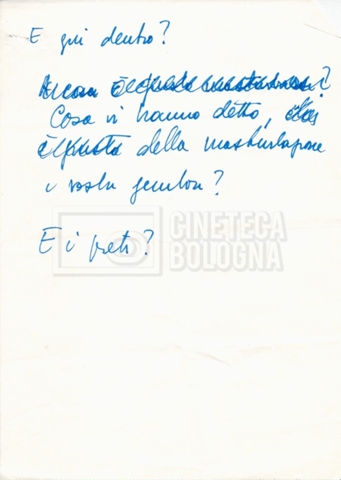 E qui dentro?
Cosa vi hanno detto,
della masturbazione
i vostri genitori?
E i preti?
CINETECA
BOLOGNA